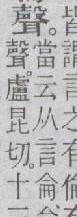 皆謂言之有倫
聲。當云从言侖侖
聲。盧昆切。十三